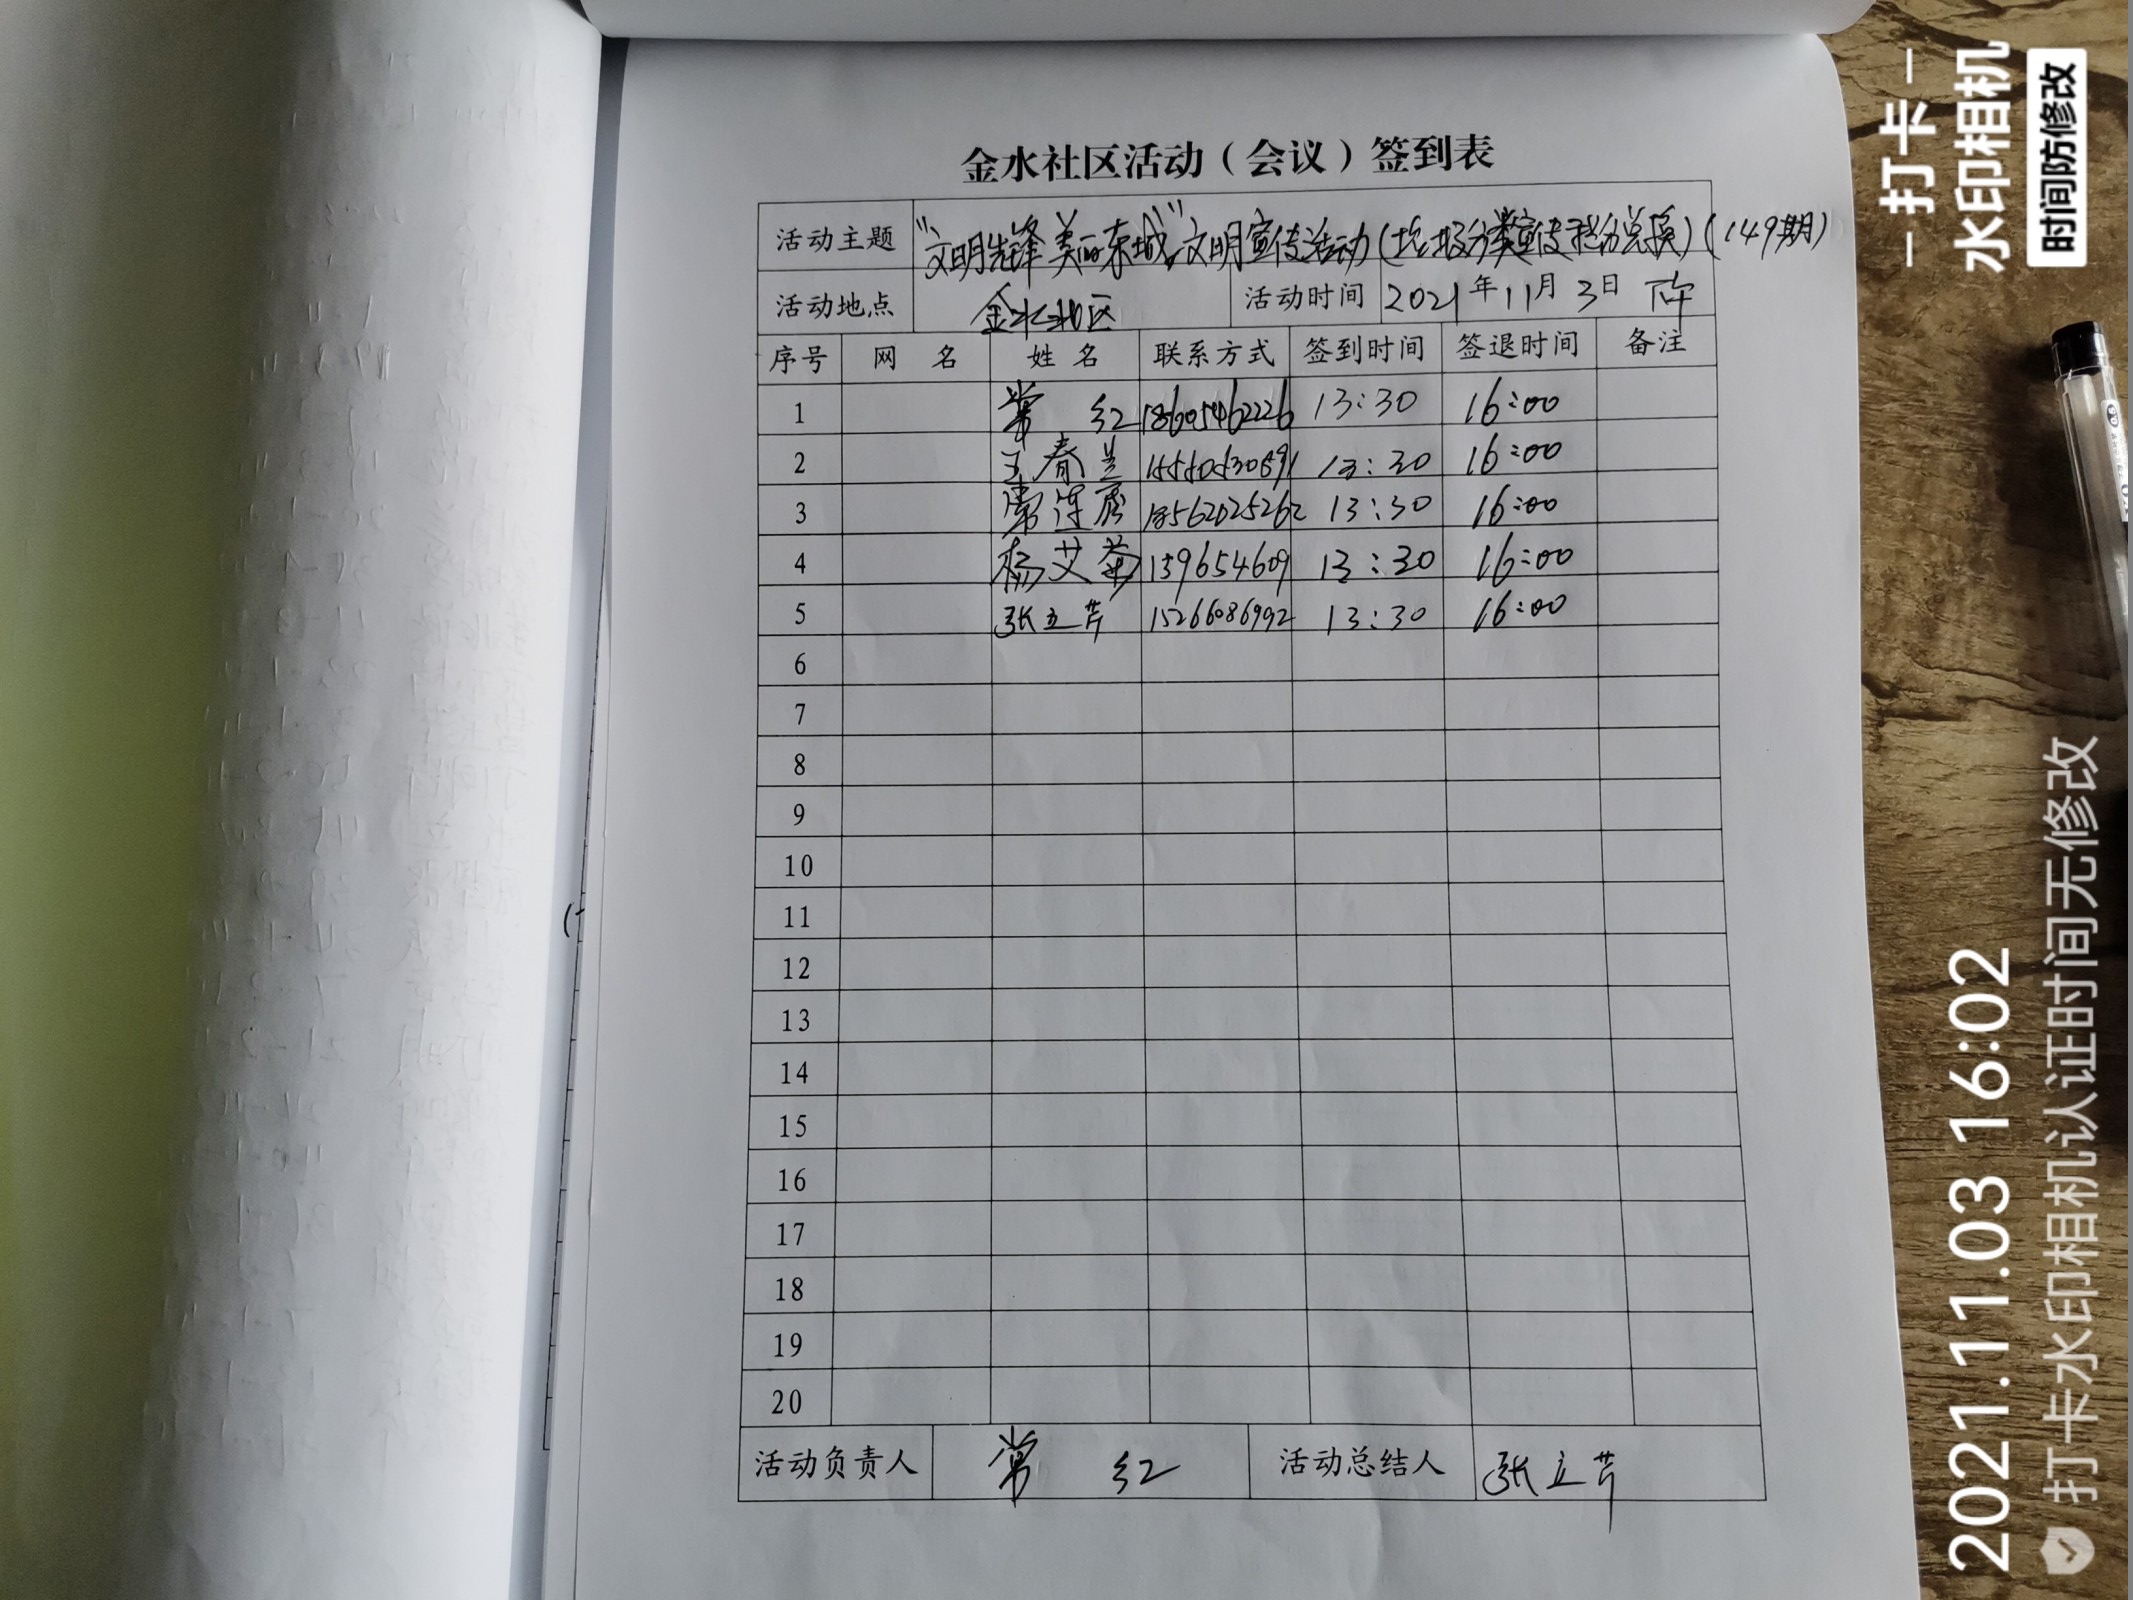 金水社区活动（会议）签到表
活动主题 "文明先锋 美丽东城"文明宣传活动(垃圾分类宣传积分兑换)(149期)
活动地点 金水社区 活动时间 2021年11月3日 下午
序号 网 名 姓 名 联系方式 签到时间 签退时间 备注
1 常 红 18605462226 13:30 16:00
2 王春兰 13:30 16:00
3 常 18562025262 13:30 16:00
4 杨艾菊 139654609 13:30 16:00
5 张立芹 15266086992 13:30 16:00
6
7
8
9
10
11
12
13
14
15
16
17
18
19
20
活动负责人 常 红 活动总结人 张立芹
打卡
水印相机
时间防修改
2021.11.03 16:02
打卡水印相机认证时间无修改